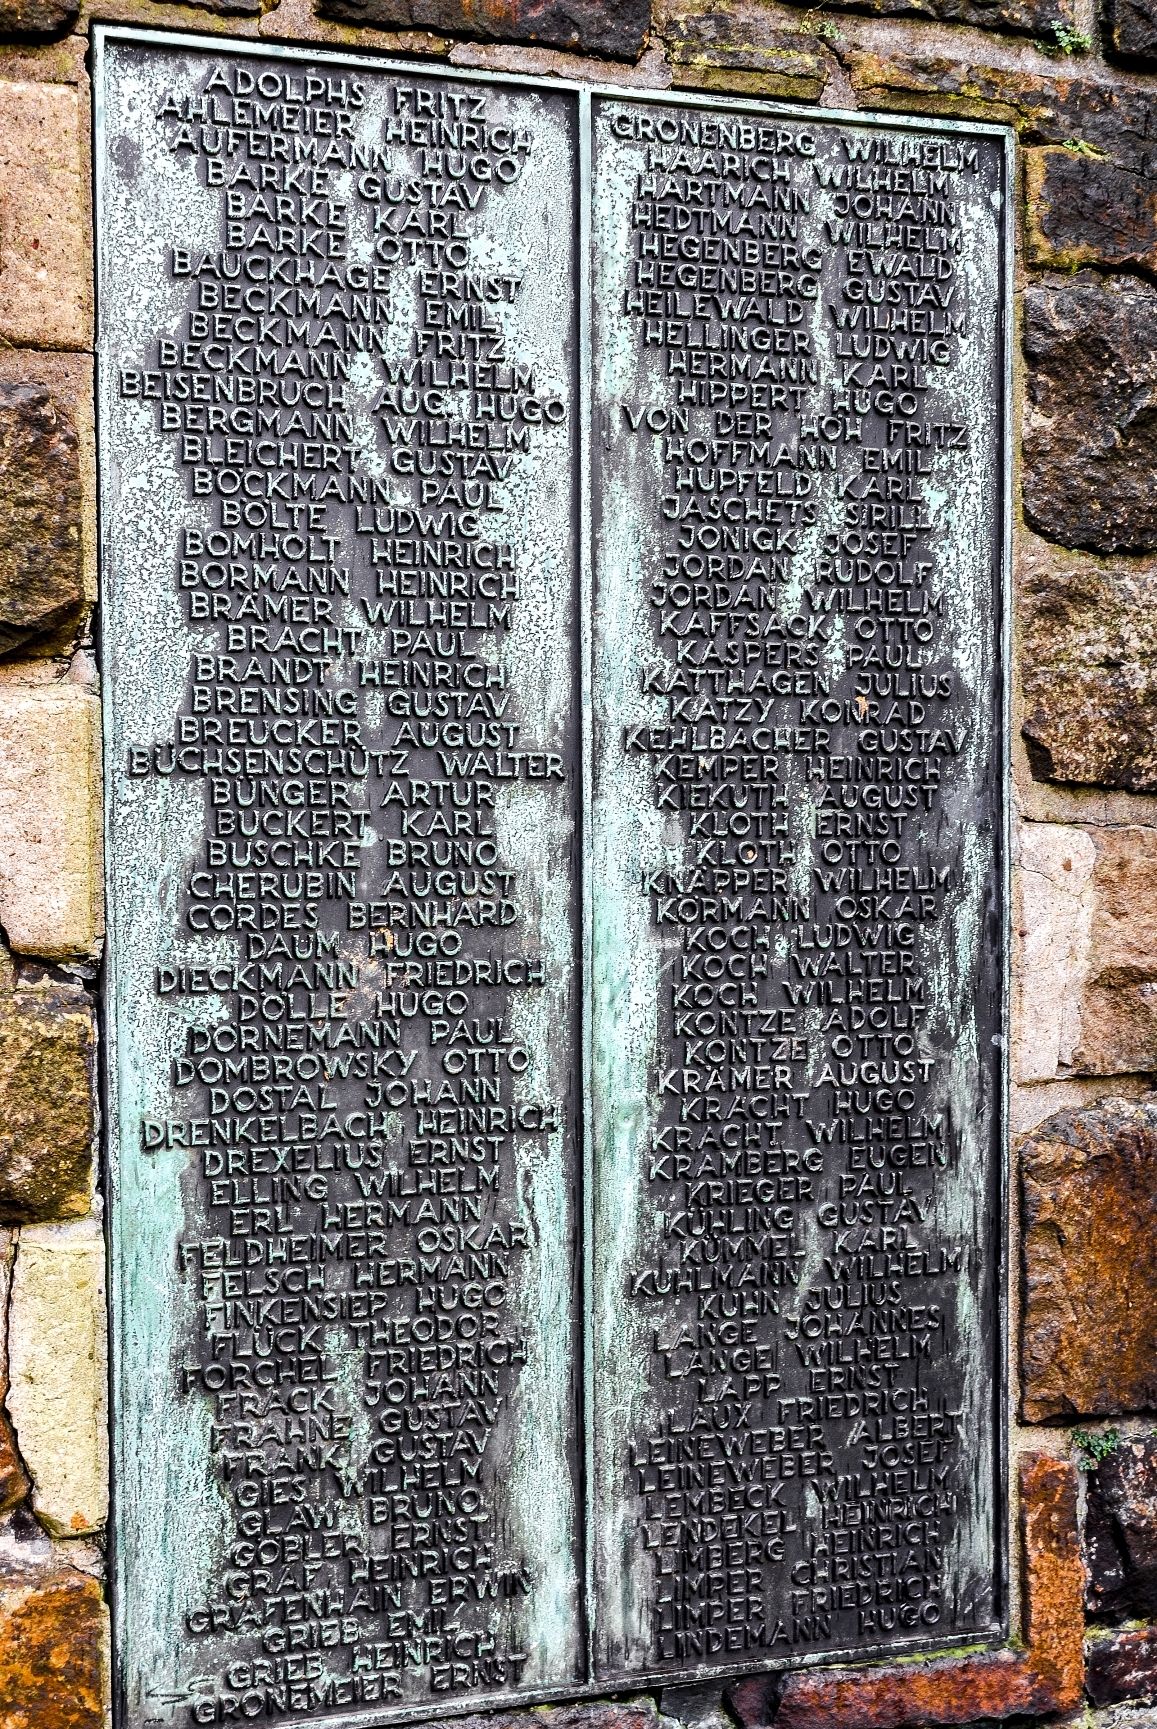 ADOLPHS FRITZ
AHLEMEIER HEINRICH
AUFERMANN HUGO
BARKE GUSTAV
BARKE KARL
BARKE OTTO
BAUCKHAGE ERNST
BECKMANN EMIL
BECKMANN FRITZ
BECKMANN WILHELM
BEISENBRUCH AUG. HUGO
BERGMANN WILHELM
BLEICHERT GUSTAV
BÖCKMANN PAUL
BÖLTE LUDWIG
BOMHOLT HEINRICH
BORMANN HEINRICH
BRÄMER WILHELM
BRACHT PAUL
BRANDT HEINRICH
BRENSING GUSTAV
BREUCKER AUGUST
BÜCHSENSCHÜTZ WALTER
BÜNGER ARTUR
BUCKERT KARL
BUSCHKE BRUNO
CHERUBIN AUGUST
CORDES BERNHARD
DAUM HUGO
DIECKMANN FRIEDRICH
DÖLLE HUGO
DÖRNEMANN PAUL
DOMBROWSKY OTTO
DOSTAL JOHANN
DRENKELBACH HEINRICH
DREXELIUS ERNST
ELLING WILHELM
ERL HERMANN
FELDHEIMER OSKAR
FELSCH HERMANN
FINKENSIEP HUGO
FLÜCK THEODOR
FORCHEL FRIEDRICH
FRACK JOHANN
FRAHNE GUSTAV
FRANK GUSTAV
GIES WILHELM
GLAW BRUNO
GÖBLER ERNST
GRAF HEINRICH
GRÄFENHAIN ERWIN
GRIEB EMIL
GRIEB HEINRICH
GRONEMEIER ERNST
GRONENBERG WILHELM
HAARICH WILHELM
HARTMANN JOHANN
HEDTMANN WILHELM
HEGENBERG EWALD
HEGENBERG GUSTAV
HEILEWALD WILHELM
HELLINGER LUDWIG
HERMANN KARL
HIPPERT HUGO
VON DER HÖH FRITZ
HOFFMANN EMIL
HUPFELD KARL
JASCHETS SIRILL
JONIGK JOSEF
JORDAN RUDOLF
JORDAN WILHELM
KAFFSACK OTTO
KASPERS PAUL
KATTHAGEN JULIUS
KATZY KONRAD
KEHLBACHER GUSTAV
KEMPER HEINRICH
KIEKUTH AUGUST
KLOTH ERNST
KLOTH OTTO
KNÄPPER WILHELM
KÖRMANN OSKAR
KOCH LUDWIG
KOCH WALTER
KOCH WILHELM
KONTZE ADOLF
KONTZE OTTO
KRÄMER AUGUST
KRACHT HUGO
KRACHT WILHELM
KRAMBERG EUGEN
KRIEGER PAUL
KÜHLING GUSTAV
KÜMMEL KARL
KUHLMANN WILHELM
KUHN JULIUS
LANGE JOHANNES
LANGE WILHELM
LAPP ERNST
LAUX FRIEDRICH
LEINEWEBER ALBERT
LEINEWEBER JOSEF
LEMBECK WILHELM
LENDEKEL HEINRICH
LIMBERG HEINRICH
LIMPER CHRISTIAN
LIMPER FRIEDRICH
LINDEMANN HUGO